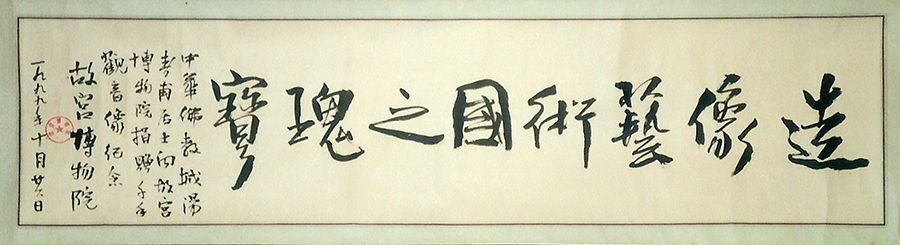 造像藝術國之瑰寶
中華佛教城湯
壽甫居士向故宮
博物院捐贈千手
觀音像紀念
故宮博物院
一九九九年十月廿六日